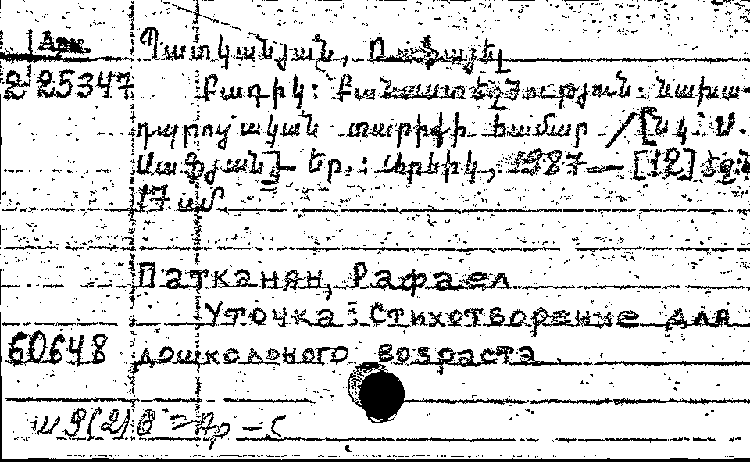 Արմ. Պատկանյան, Ռափայել
2 25347 Բադիկ: Բանաստեղծություն: Նախա-
դպրոցական տարիքի համար / [Նկ.՝ Ա.
Սաֆյան].— Եր.: Արևիկ, 1987.— [12] էջ:
17 սմ
Патканян, Рафаел
Уточка: Стихотворение для
60648 дошколоного возраста